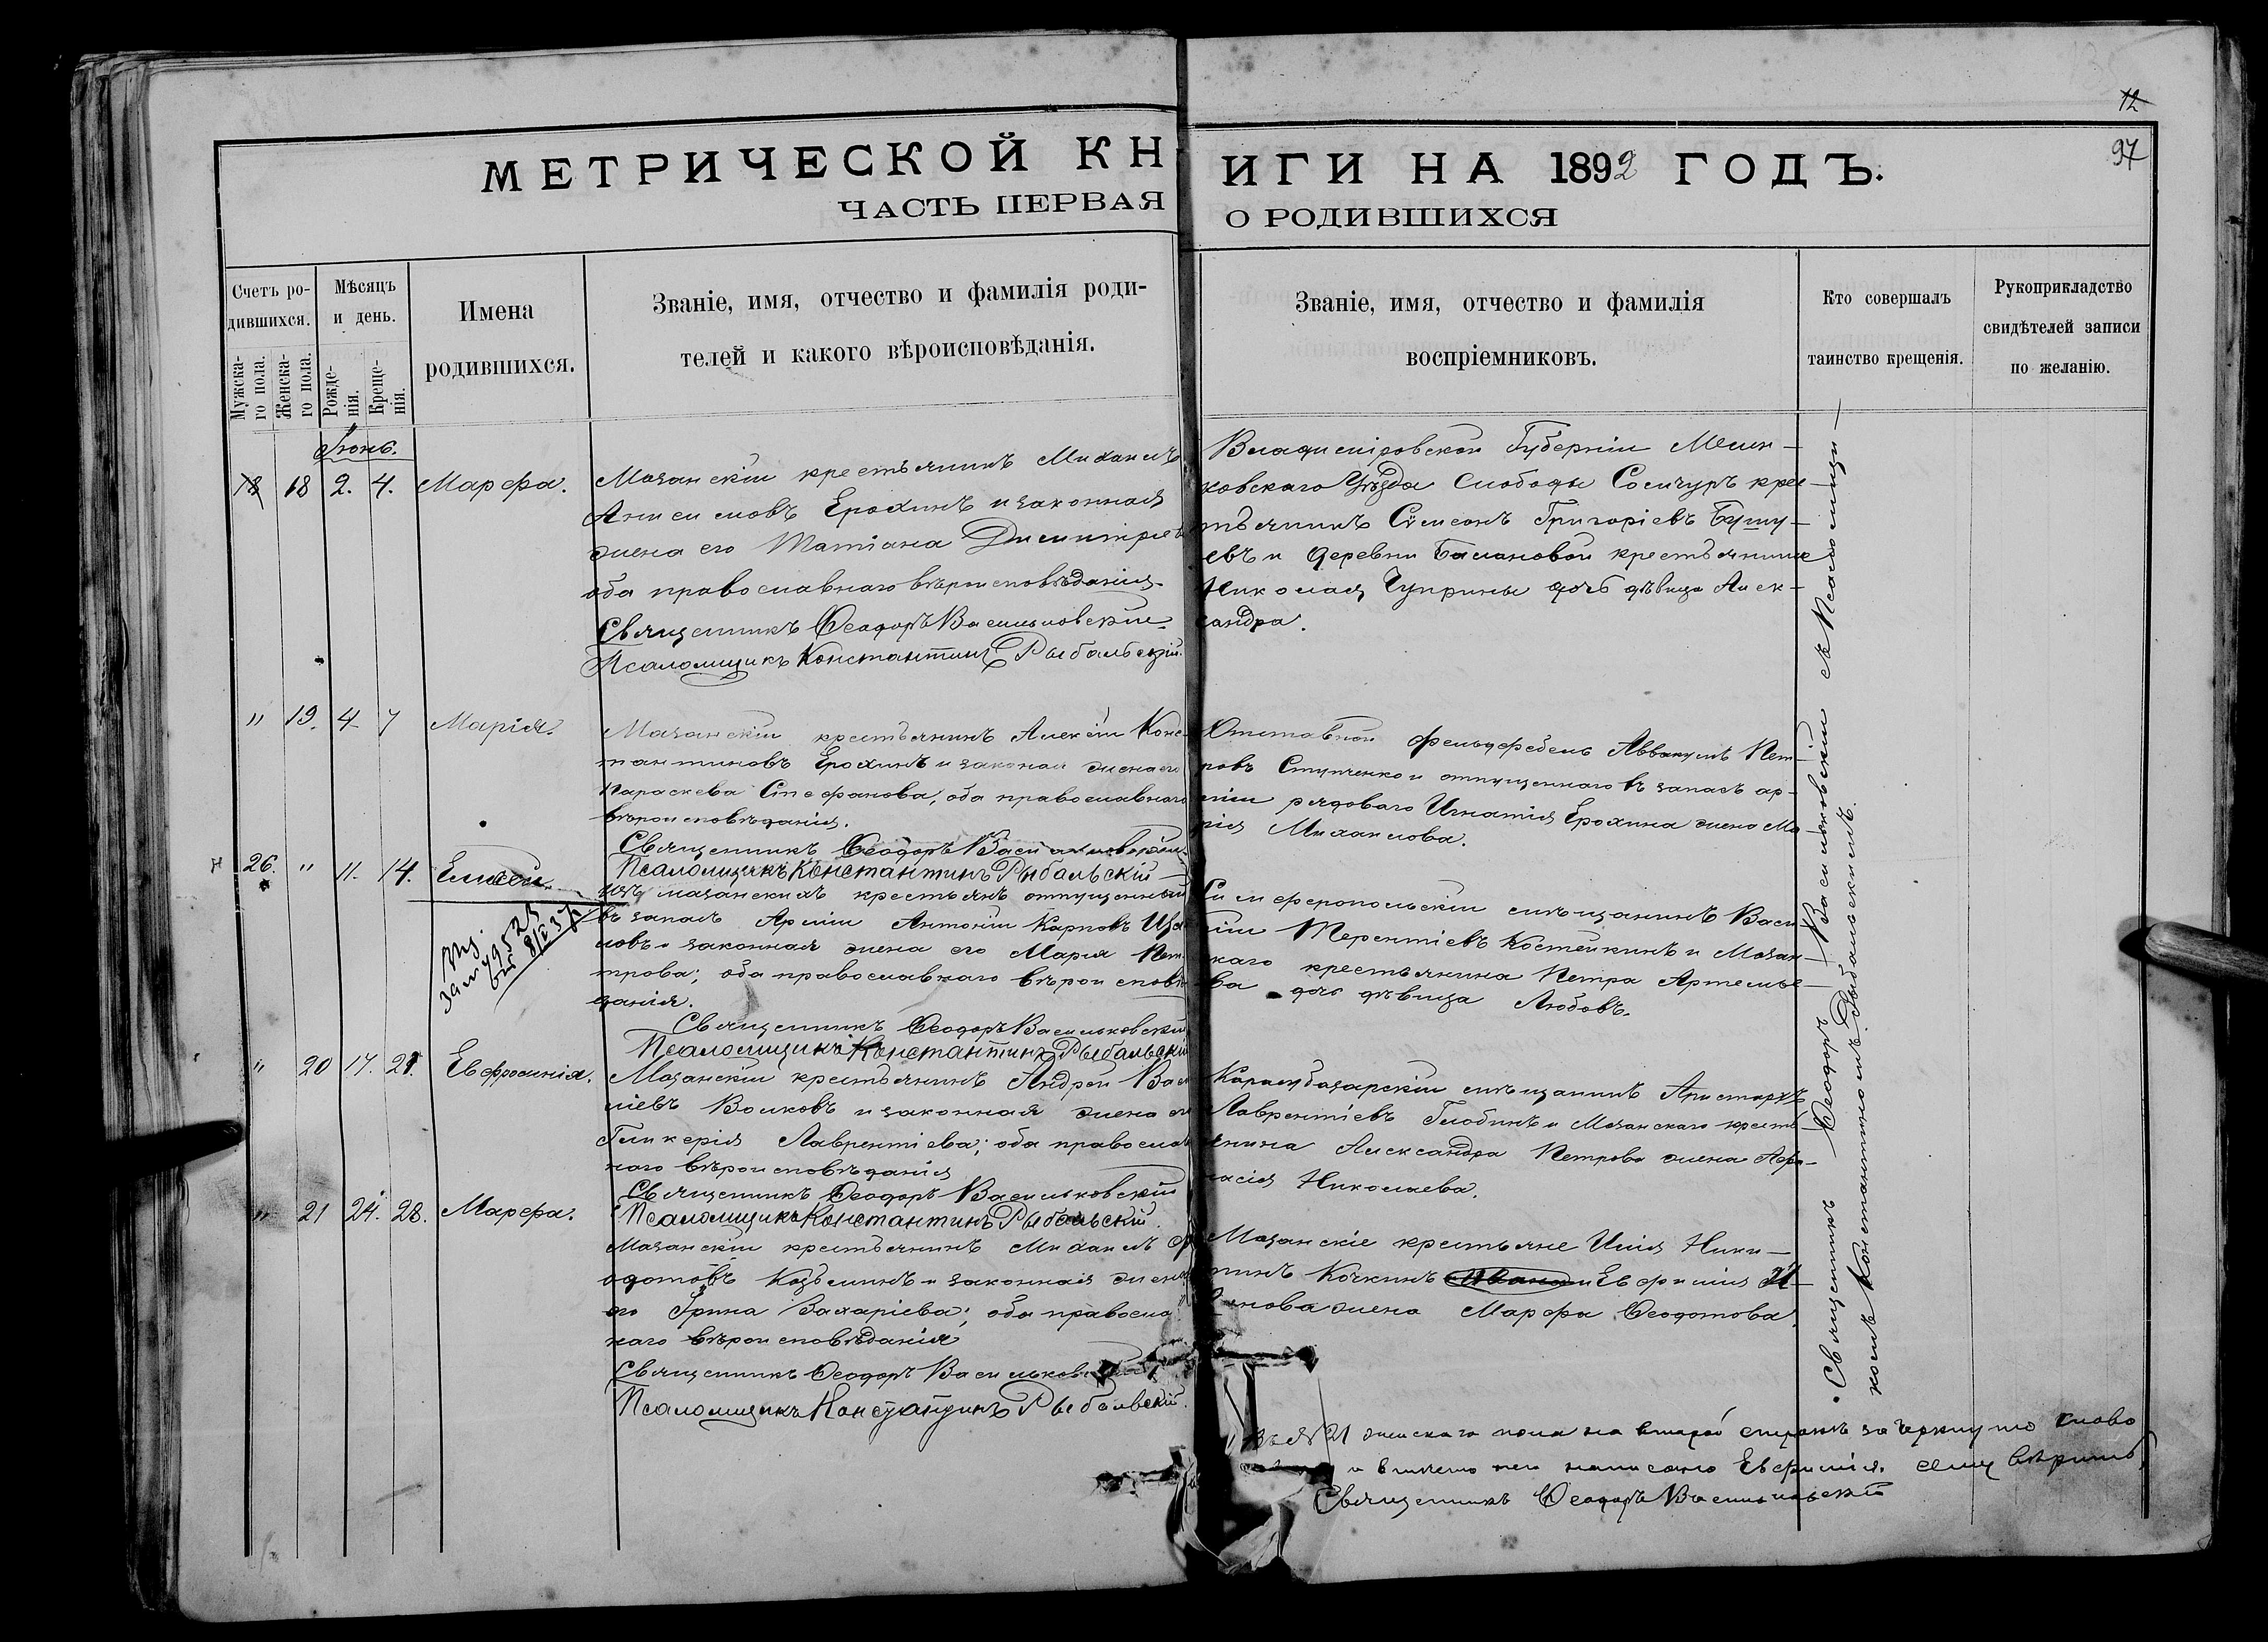 12
97
МЕТРИЧЕСКОЙ КНИГИ НА 1892 ГОДЪ.
ЧАСТЬ ПЕРВАЯ О РОДИВШИХСЯ
Счетъ родившихся.
Мужскаго пола.
Женскаго пола.
Мѣсяцъ и день.
Рожденія.
Крещенія.
Имена родившихся.
Званіе, имя, отчество и фамилія роди-
телей и какого вѣроисповѣданія.
Званіе, имя, отчество и фамилія
воспріемниковъ.
Кто совершалъ
таинство крещенія.
Рукоприкладство
свидѣтелей записи
по желанію.
Іюнь.
18 2. 4. Марфа.
Мазанскій крестьянинъ Михаилъ
Анисимовъ Ерохинъ и законная
жена его Татіана Димитріев
оба православнаго вѣроисповѣданія.
Священникъ Ѳеодоръ Васильковскій
Псаломщикъ Константинъ Рыбальскій.
Владимировской Губерніи Мелен-
ковскаго Уѣзда Слободы крес
тьянинъ Сѵмеонъ Григоріевъ
евъ и деревни крестьянина
Николая Чуприны дочь дѣвица Алек-
сандра.
" 19. 4. 7 Марія.
Мазанскій крестьянинъ Алексій Конс-
тантиновъ Ерохинъ и законая жена его
Параскева Стефанова, оба православнаго
вѣроисповѣданія.
Священникъ Ѳеодоръ Васильковскій
Псаломщикъ Константинъ Рыбальскій
Отставной фельдфебель Аввакумъ Пет-
ровъ Ступченко и отпущеннаго въ запасъ ар-
міи рядоваго Игнатія Ерохина жена Ма
рія Михаилова.
26. " 11. 14. Елисей
изъ мазанскихъ крестьянъ отпущенный
въ запасъ Арміи Антоній Карповъ
ловъ и законная жена его Марія Пет-
трова; оба православнаго вѣроисповѣ
данія.
Священникъ Ѳеодоръ Васильковскій
Псаломщикъ Константинъ Рыбальскій
Симферопольскій мѣщанинъ Васи
лій Терентіевъ Костейкинъ и Мазан-
скаго крестьянина Петра Артемье-
ва дочь дѣвица Любовь.
" 20 17. 21. Евфросинія.
Мазанскій крестьянинъ Андрей Васи
ліевъ Волковъ и законная жена его
Гликерія Лаврентіева; оба православ
наго вѣроисповѣданія
Священникъ Ѳеодоръ Васильковскій
Псаломщикъ Константинъ Рыбальскій.
Карасубазарскій мѣщанинъ Аристархъ
Лаврентіевъ Глобинъ и Мазанскаго кресть-
янина Александра Петрова жена Афа-
насія Николаева.
" 21 24. 28. Марфа.
Мазанскій крестьянинъ Михаилъ Ѳе
одотовъ Козьминъ и законная жена
его Ірина Захаріева; оба православ
наго вѣроисповѣданія
Священникъ Ѳеодоръ Васильковскій
Псаломщикъ Константинъ Рыбальскій.
Мазанскіе крестьяне Илія Ники-
тинъ Кочкинъ и Евфимія
жена Марфа Ѳеодотова.
Священникъ Ѳеодоръ Васильковскій съ Псаломщи-
комъ Константиномъ Рыбальскимъ.
Въ № 21 женскаго пола на второй строкѣ зачеркнуто слово
и вмѣсто него написано Евфимія. сему вѣрить
Священникъ Ѳеодоръ Васильковскій